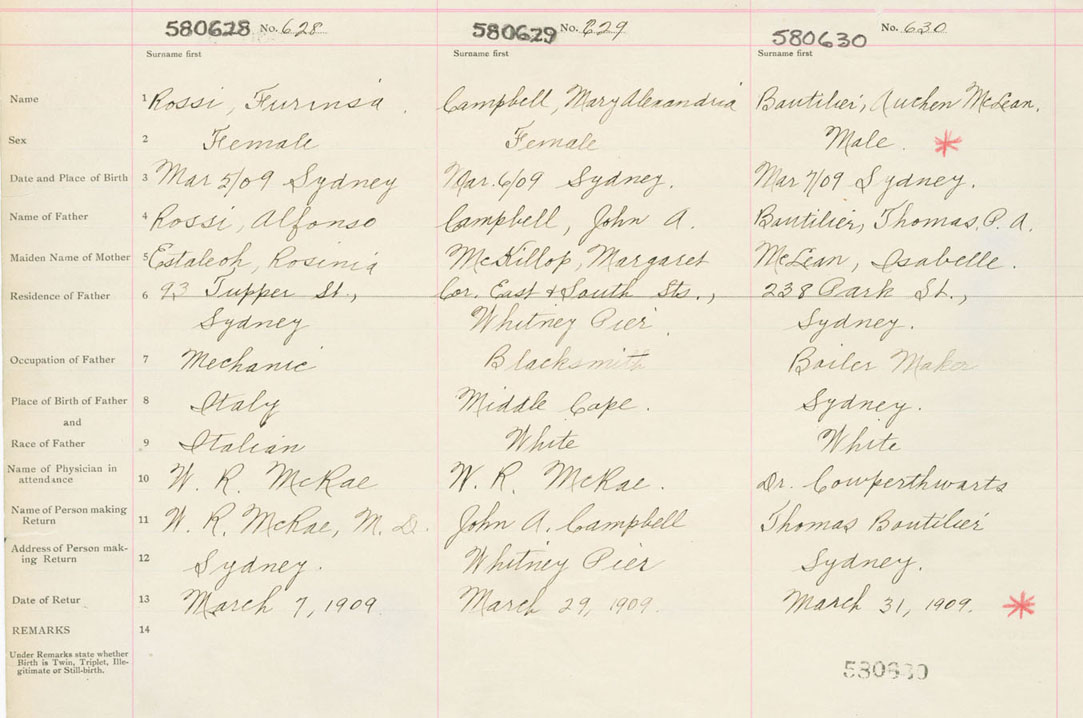 580628 No. 628 580629 No. 629 580630 No. 630
Surname first Surname first Surname first
Name 1 Rossi, Furinsa. Campbell, Mary Alexandria Boutilier, Auchen McLean.
Sex 2 Female Female Male.
Date and Place of Birth 3 Mar 5/09 Sydney Mar. 6/09 Sydney. Mar 7/09 Sydney.
Name of Father 4 Rossi, Alfonso Campbell, John A. Boutilier, Thomas. P. A.
Maiden Name of Mother 5 Rosinia McKillop, Margaret McLean, Isabelle.
Residence of Father 6 93 Tupper St., Cor. East & South Sts., 238 Park St.,
Sydney Whitney Pier Sydney.
Occupation of Father 7 Mechanic Blacksmith Boiler Maker
Place of Birth of Father 8 Italy Middle Cape. Sydney.
and
Race of Father 9 Italian White White
Name of Physician in
attendance 10 W. R. McRae W. R. McRae. Dr. Cowperthwarts
Name of Person making
Return 11 W. R. McRae, M. D. John A. Campbell Thomas Boutilier
Address of Person mak-
ing Return 12 Sydney. Whitney Pier Sydney.
Date of Retur 13 March 7, 1909 March 29, 1909. March 31, 1909.
REMARKS 14
Under Remarks state whether
Birth is Twin, Triplet, Ille-
gitimate or Still-birth.
580630